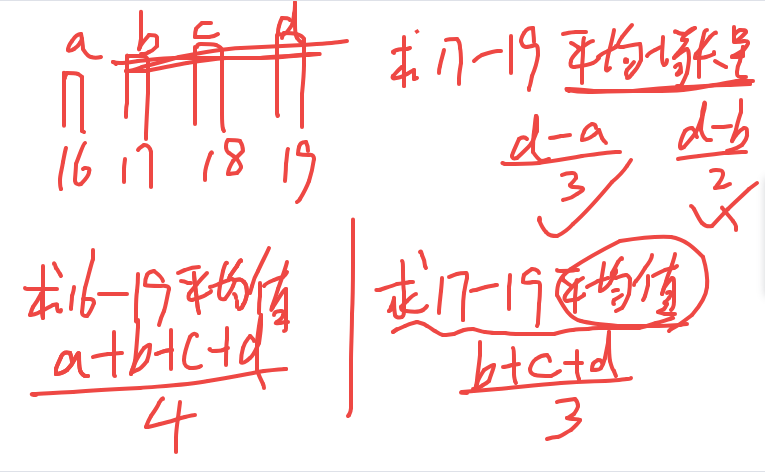 a b c d
16 17 18 19
求17-19平均增长量
d-a/3 ✓ d-b/2 ✓×
求16-19平均值
a+b+c+d
4
求17-19平均值
b+c+d
3